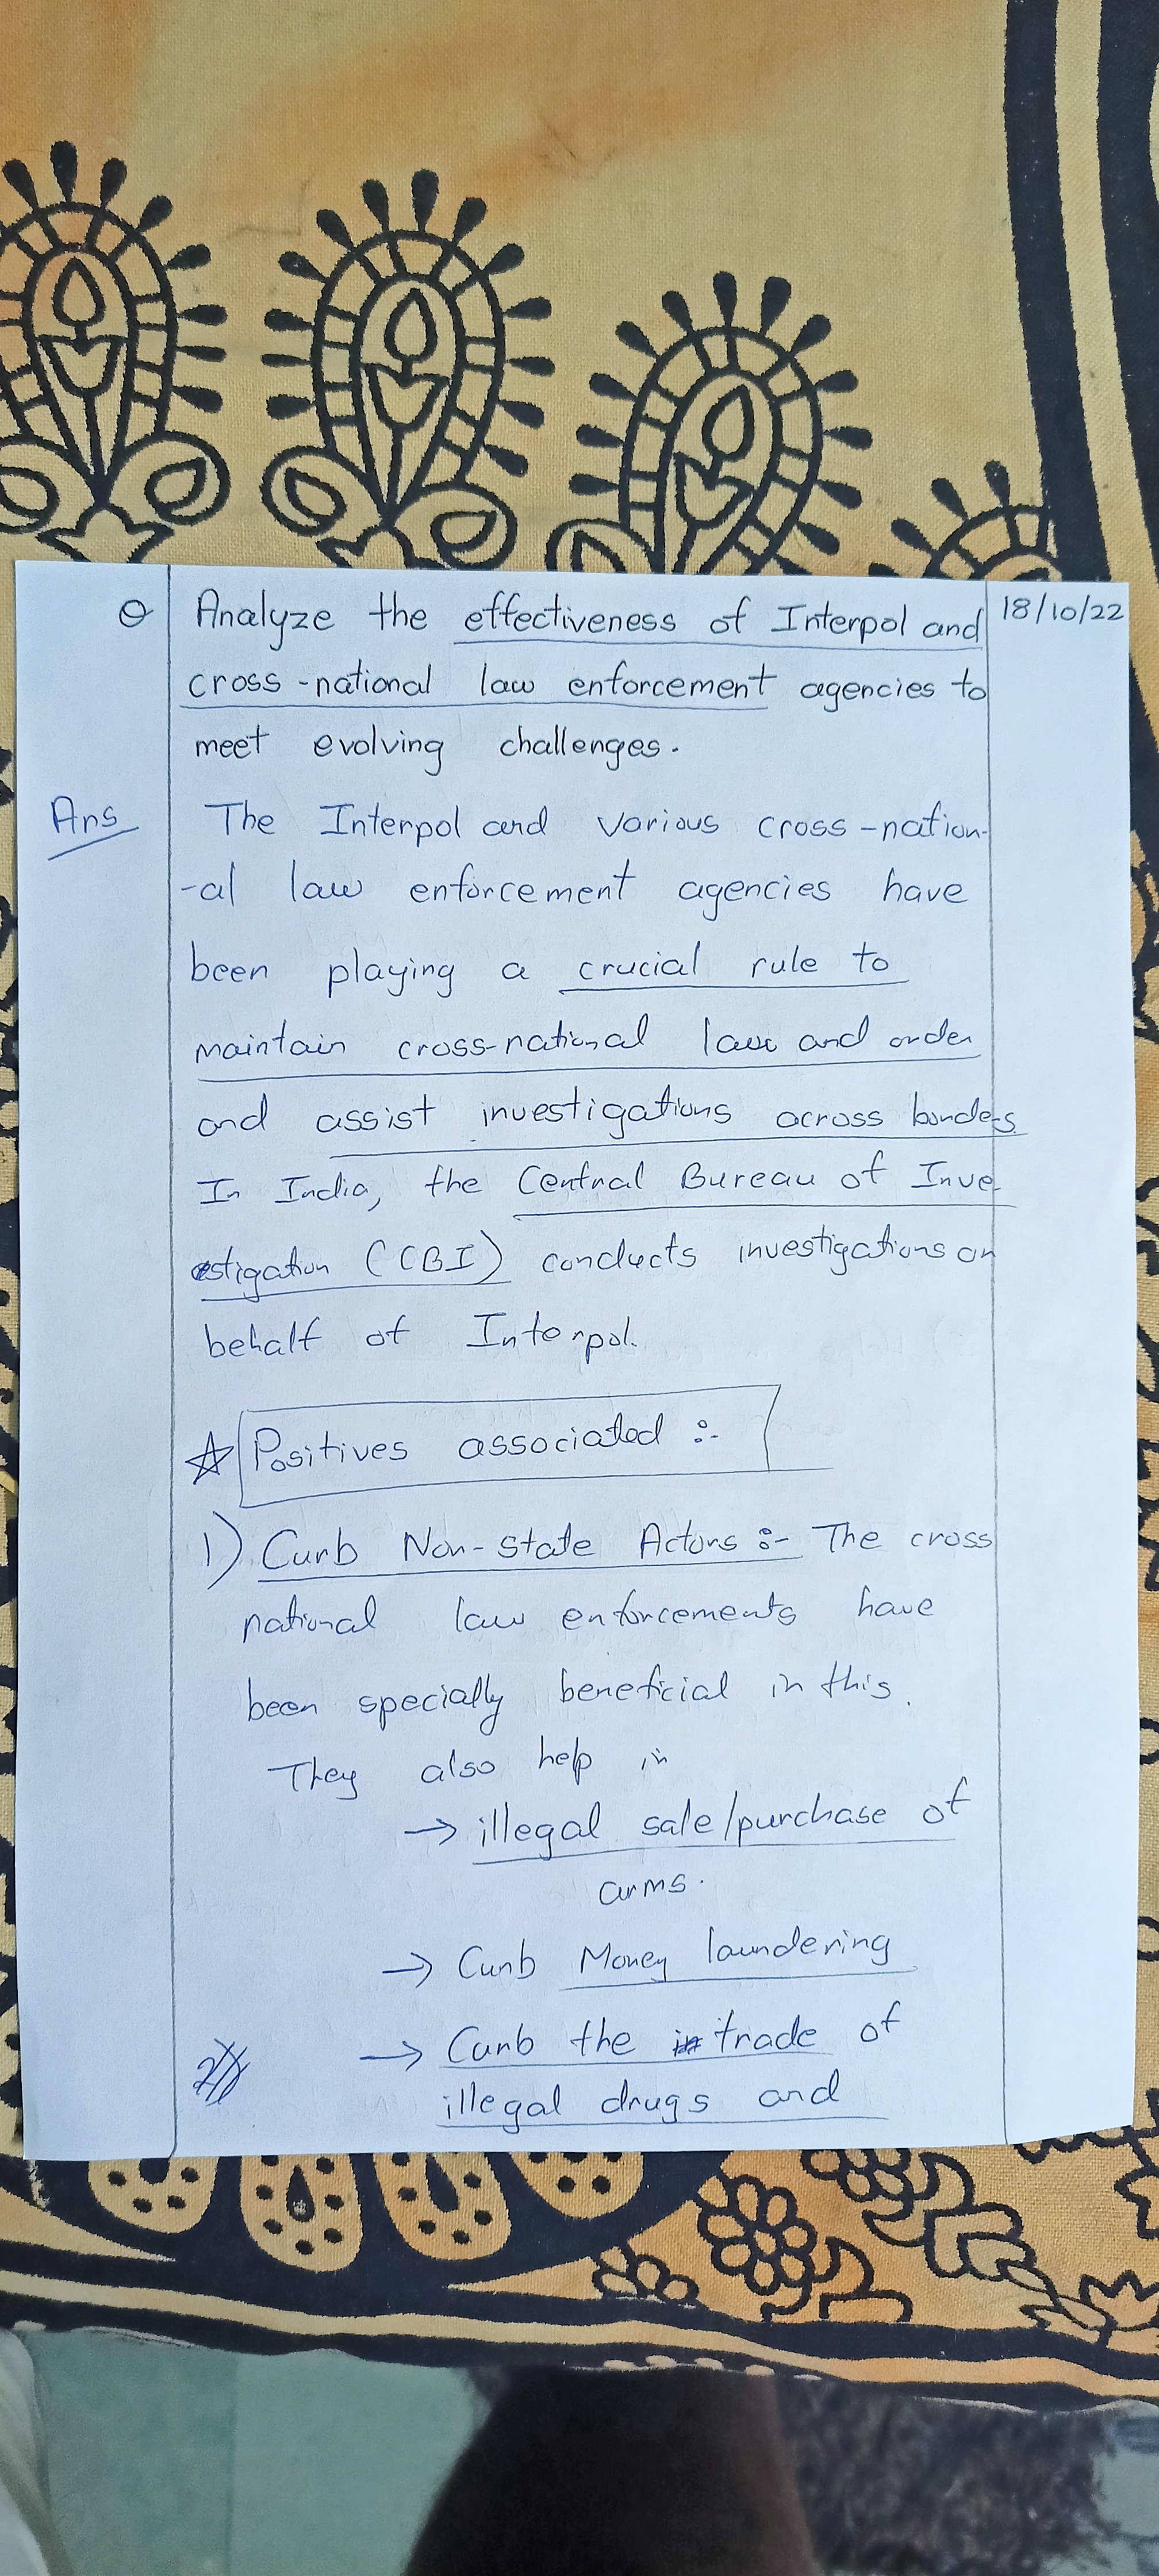 Q Analyze the effectiveness of Interpol and 18/10/22
cross-national law enforcement agencies to
meet evolving challenges.
Ans The Interpol and various cross-nation-
-al law enforcement agencies have
been playing a crucial rule to
maintain cross-national law and order
and assist investigations across borders
In India, the Central Bureau of Inve
stigation (CBI) conducts investigations on
behalf of Interpol.
☆ Positives associated :-
1) Curb Non-state Actors :- The cross
national law enforcements have
been specially beneficial in this.
They also help in
→ illegal sale/purchase of
arms.
→ Curb Money laundering
→ Curb the trade of
illegal drugs and